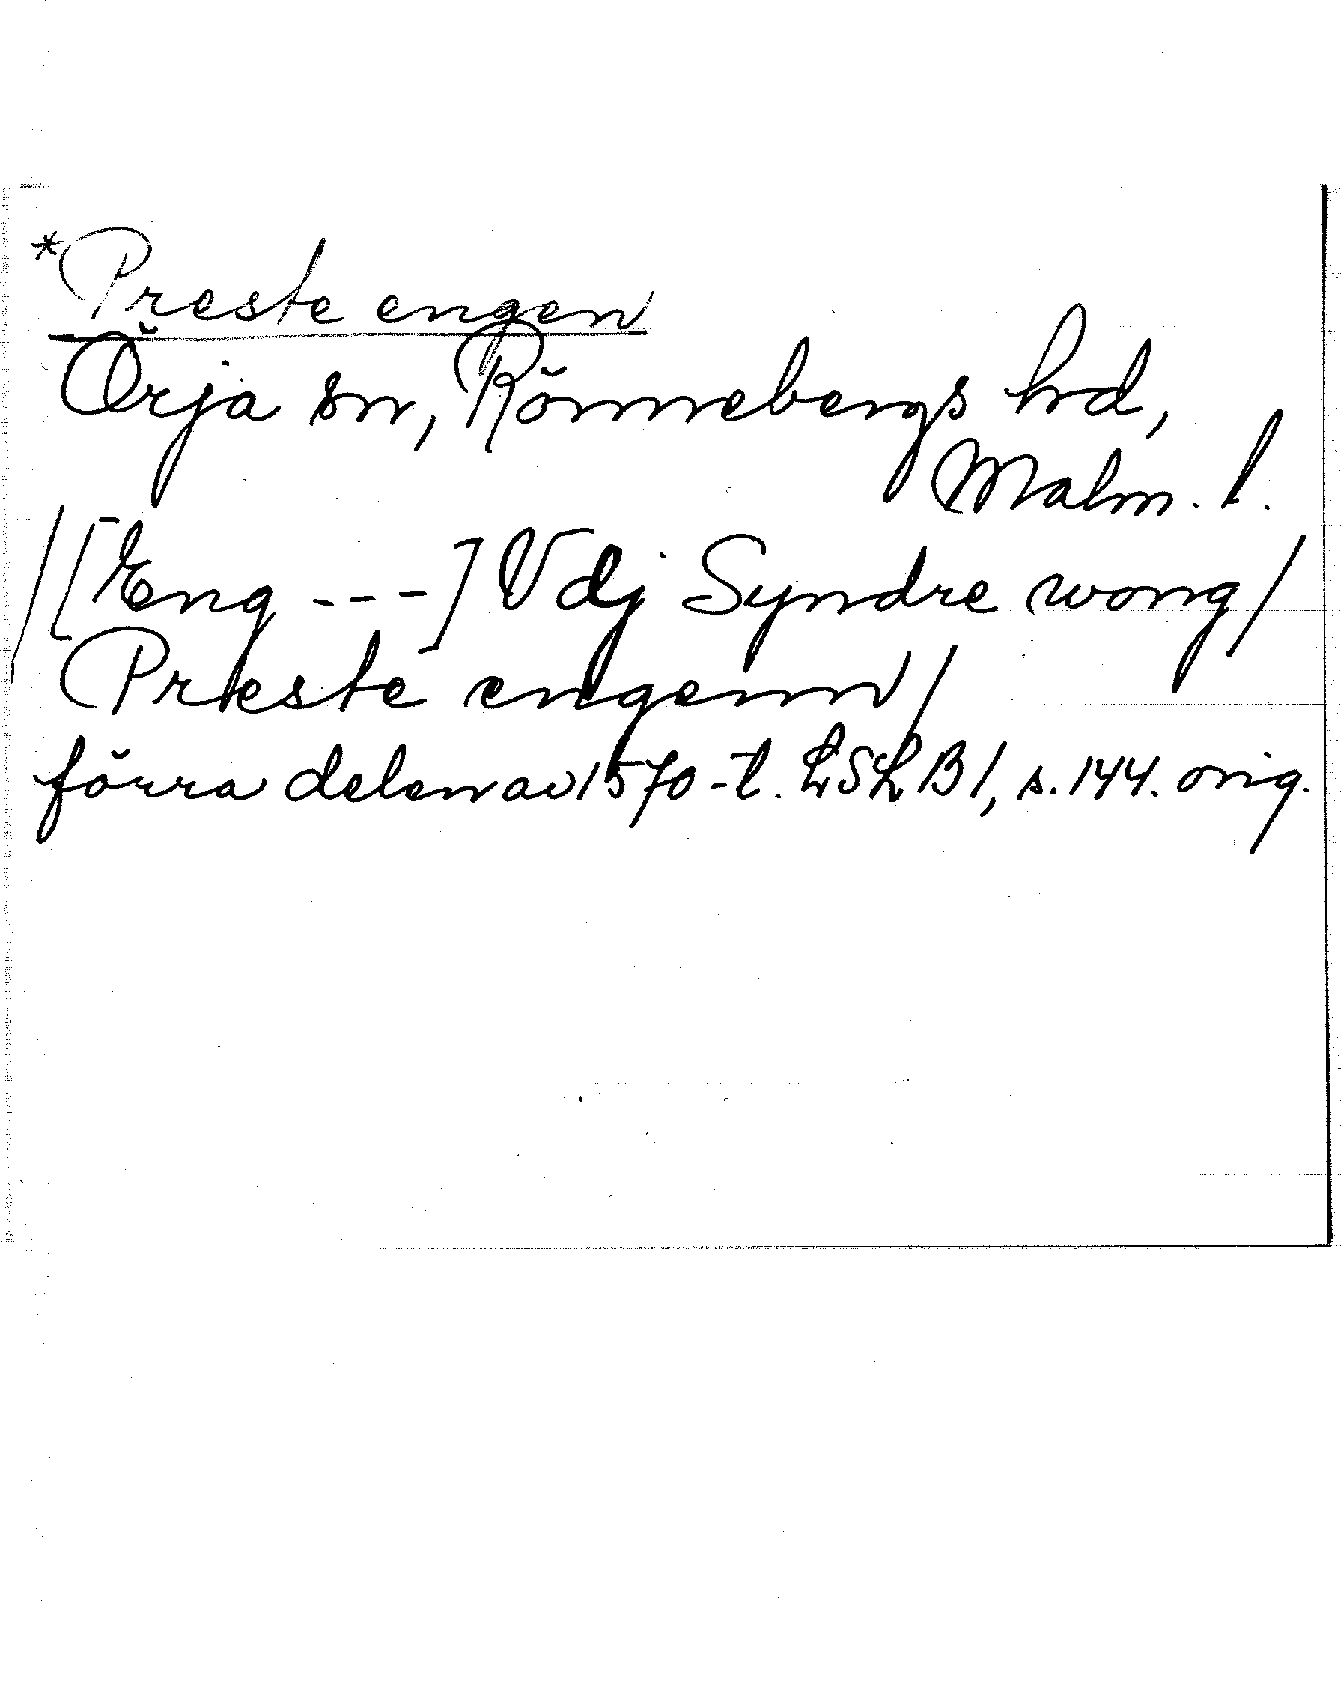 *Preste engen
Örja sn, Rönnebergs hd,
Malm. l.
/[Eng ---] Vdj Syndre wong/
Preste engenn/
förra delen av 1570-t. LSLB1, s. 144. orig.